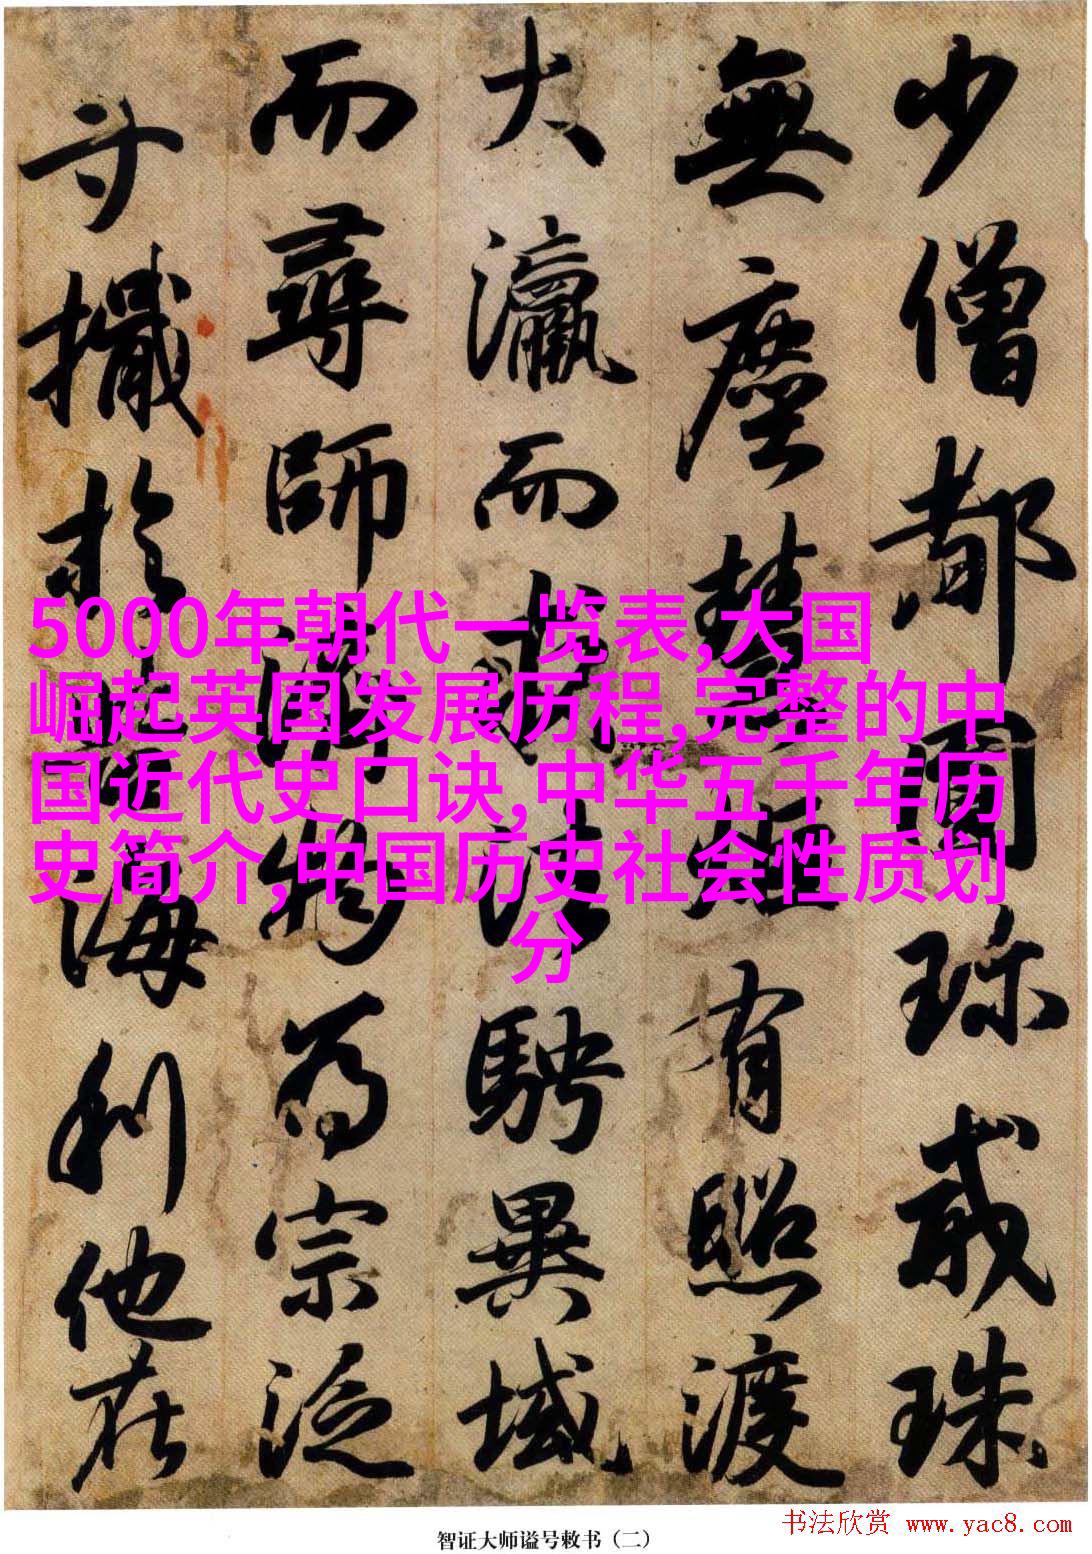 少僧都圓珎戒珠
無塵慧炬有照渡
大瀛而求法騁異域
而尋師物為宗泛
於海利他在
5000年朝代一览表,大国
崛起英国发展历程,完整的中
国近代史口诀,中华五千年历
史简介,中国历史社会性质划
分
智证大师谥号敕书（二）
书法欣赏 www.yac8.com